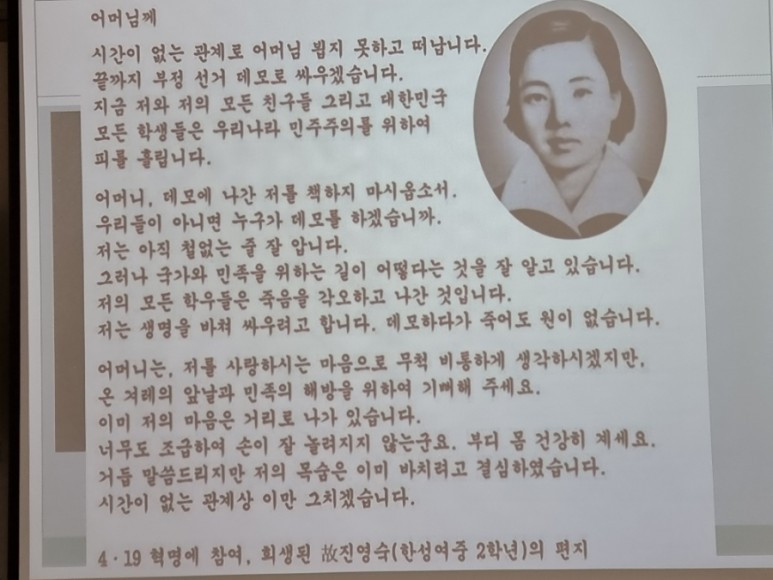 어머님께
시간이 없는 관계로 어머님 뵙지 못하고 떠납니다.
끝까지 부정 선거 데모로 싸우겠습니다.
지금 저와 저의 모든 친구들 그리고 대한민국
모든 학생들은 우리나라 민주주의를 위하여
피를 흘립니다.
어머니, 데모에 나간 저를 책하지 마시옵소서.
우리들이 아니면 누구가 데모를 하겠습니까.
저는 아직 철없는 줄 잘 압니다.
그러나 국가와 민족을 위하는 길이 어떻다는 것을 잘 알고 있습니다.
저의 모든 학우들은 죽음을 각오하고 나간 것입니다.
저는 생명을 바쳐 싸우려고 합니다. 데모하다가 죽어도 원이 없습니다.
어머니는, 저를 사랑하시는 마음으로 무척 비통하게 생각하시겠지만,
온 겨레의 앞날과 민족의 해방을 위하여 기뻐해 주세요.
이미 저의 마음은 거리로 나가 있습니다.
너무도 조급하여 손이 잘 놀려지지 않는군요. 부디 몸 건강히 계세요.
거듭 말씀드리지만 저의 목숨은 이미 바치려고 결심하였습니다.
시간이 없는 관계상 이만 그치겠습니다.
4·19 혁명에 참여, 희생된 故진영숙(한성여중 2학년)의 편지